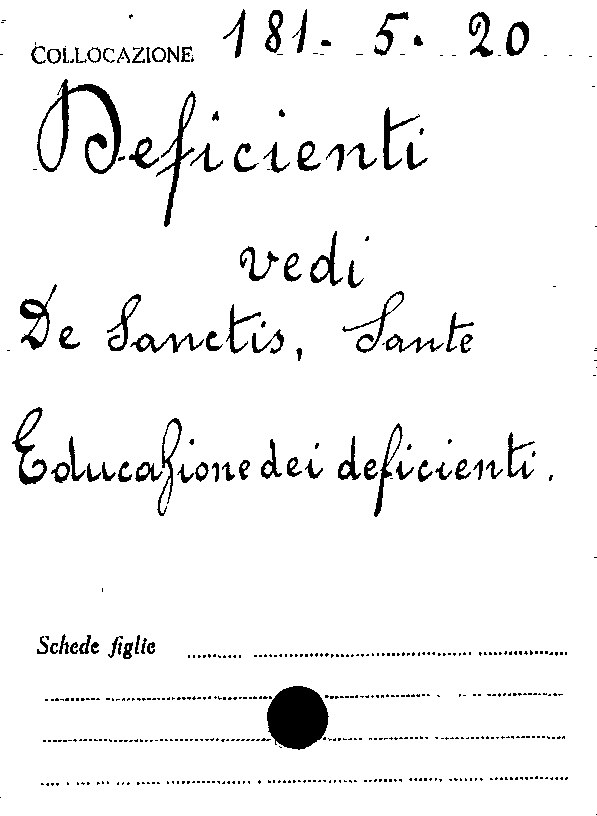 COLLOCAZIONE 181. 5. 20
Deficienti
vedi
De Sanctis, Sante
Educazione dei deficienti.
Schede figlie